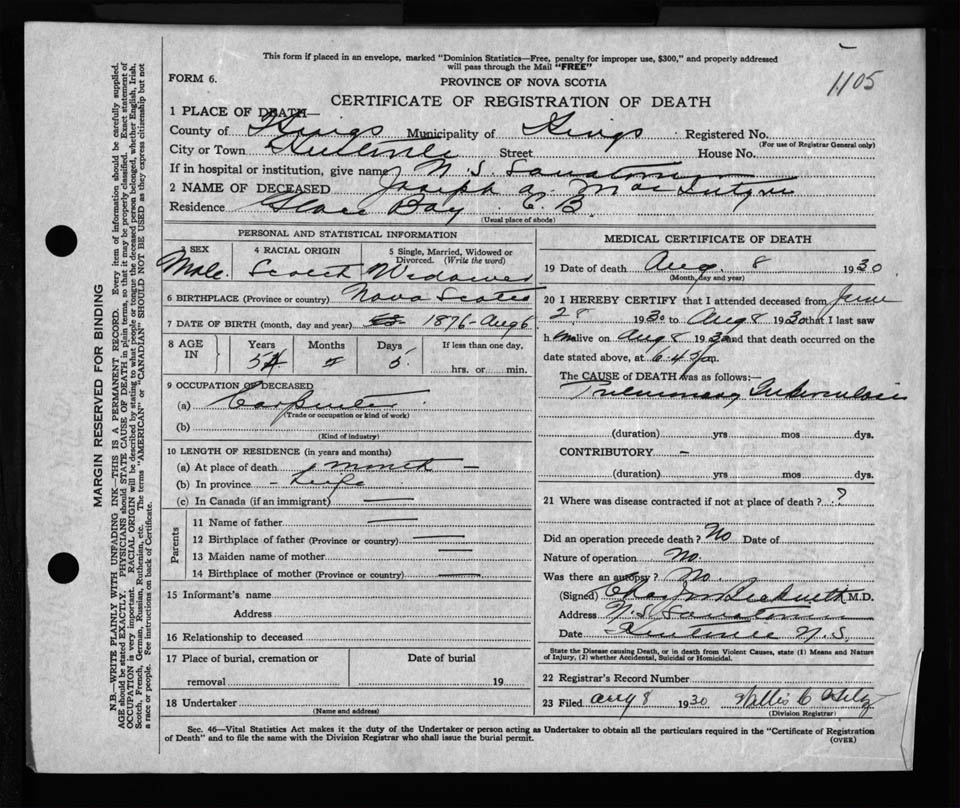 This form if placed in an envelope, marked "Dominion Statistics—Free, penalty for improper use, $300," and properly addressed
will pass through the Mail "FREE"
1105
FORM 6.
PROVINCE OF NOVA SCOTIA
CERTIFICATE OF REGISTRATION OF DEATH
1 PLACE OF DEATH—
County of Kings Municipality of Kings Registered No.
(For use of Registrar General only)
City or Town Kentville Street House No.
If in hospital or institution, give name N. S. Sanatorium
2 NAME OF DECEASED Joseph A. MacIntyre
Residence Glace Bay C. B.
(Usual place of abode)
PERSONAL AND STATISTICAL INFORMATION
3 SEX 4 RACIAL ORIGIN 5 Single, Married, Widowed or Divorced. (Write the word)
Male. Scotch Widower
6 BIRTHPLACE (Province or country) Nova Scotia
7 DATE OF BIRTH (month, day and year) 1876 - Aug 6
8 AGE IN Years Months Days If less than one day,
54 5 hrs. or min.
9 OCCUPATION OF DECEASED
(a) Carpenter
(Trade or occupation or kind of work)
(b)
(Kind of industry)
10 LENGTH OF RESIDENCE (in years and months)
(a) At place of death 1 month —
(b) In province - Life
(c) In Canada (if an immigrant) —
Parents
11 Name of father —
12 Birthplace of father (Province or country) —
13 Maiden name of mother —
14 Birthplace of mother (Province or country) —
15 Informant's name
Address
16 Relationship to deceased
17 Place of burial, cremation or removal Date of burial
19
18 Undertaker
(Name and address)
MEDICAL CERTIFICATE OF DEATH
19 Date of death Aug. 8 1930
(Month, day and year)
20 I HEREBY CERTIFY that I attended deceased from June
28 1930 to Aug 8 1930 that I last saw
him alive on Aug 8 1930 and that death occurred on the
date stated above, at 6.45 m.
The CAUSE of DEATH was as follows:—
Pulmonary Tuberculosis
(duration) yrs mos dys.
CONTRIBUTORY —
(duration) yrs mos dys.
21 Where was disease contracted if not at place of death? ?
Did an operation precede death? No Date of
Nature of operation No.
Was there an autopsy? No.
(Signed) Chas Beckwith M.D.
Address N. S. Sanatorium
Date Kentville N. S.
State the Disease causing Death, or in death from Violent Causes, state (1) Means and Nature
of Injury, (2) whether Accidental, Suicidal or Homicidal.
22 Registrar's Record Number
23 Filed Aug 8 1930 Wallis C
(Division Registrar)
Sec. 46—Vital Statistics Act makes it the duty of the Undertaker or person acting as Undertaker to obtain all the particulars required in the "Certificate of Registration
of Death" and to file the same with the Division Registrar who shall issue the burial permit.
(OVER)
MARGIN RESERVED FOR BINDING
N.B.—WRITE PLAINLY WITH UNFADING INK—THIS IS A PERMANENT RECORD. Every item of information should be carefully supplied.
AGE should be stated EXACTLY. PHYSICIANS should STATE CAUSE OF DEATH in plain terms, so that it may be properly classified. Exact statement of
OCCUPATION is very important. RACIAL ORIGIN will be described by stating to what people or tongue the deceased person belonged, whether English, Irish,
Scotch, French, German, Russian, Ruthenian, etc. The terms "AMERICAN" or "CANADIAN" SHOULD NOT BE USED as they express citizenship but not
a race or people. See instructions on back of Certificate.